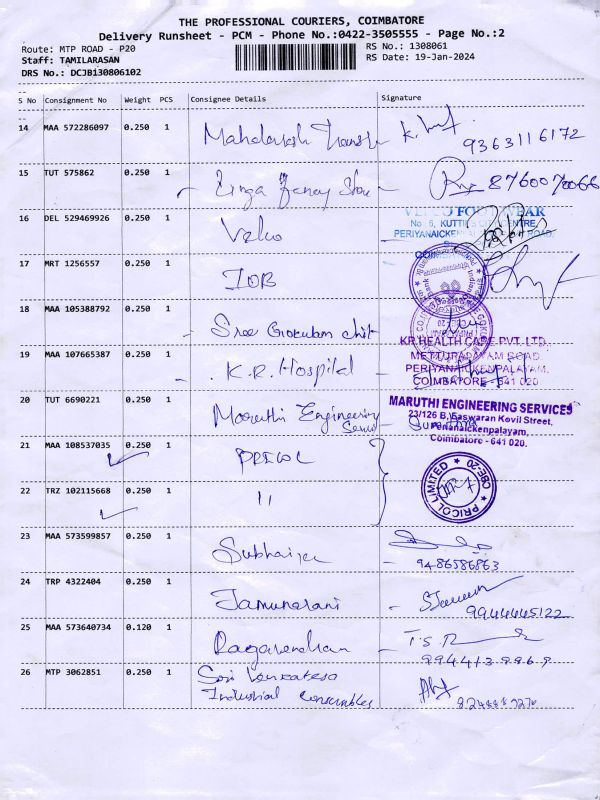 THE PROFESSIONAL COURIERS, COIMBATORE
Delivery Runsheet - PCM - Phone No.:0422-3505555 - Page No.:2
Route: MTP ROAD - P20 RS No.: 1308061
Staff: TAMILARASAN RS Date: 19-Jan-2024
DRS No.: DCJB130806102
S No Consignment No Weight PCS Consignee Details Signature
14 MAA 572286097 0.250 1
9363116172
15 TUT 575862 0.250 1
8760070066
16 DEL 529469926 0.250 1 Velco
VELCO FOOTWEAR
17 MRT 1256557 0.250 1 IOB
18 MAA 105388792 0.250 1 Sree Gokulam Chit
19 MAA 107665387 0.250 1 K.R. Hospital
KR HEALTH CARE PVT. LTD.,
METTUPALAYAM ROAD
PERIYANAICKENPALAYAM,
COIMBATORE - 641 020
20 TUT 6690221 0.250 1 Maruthi Engineering
MARUTHI ENGINEERING SERVICES
23/126 B, Easwaran Kovil Street,
Coimbatore - 641 020.
21 MAA 108537035 0.250 1 PRICOL
PRICOL LIMITED CBE-20
22 TRZ 102115668 0.250 1 "
23 MAA 573599857 0.250 1
9486586863
24 TRP 4322404 0.250 1 Jamunarani
9944445122
25 MAA 573640734 0.120 1 Ragavendran
994413 9969
26 MTP 3062851 0.250 1 Sri Venkatesa
Industrial Consumables